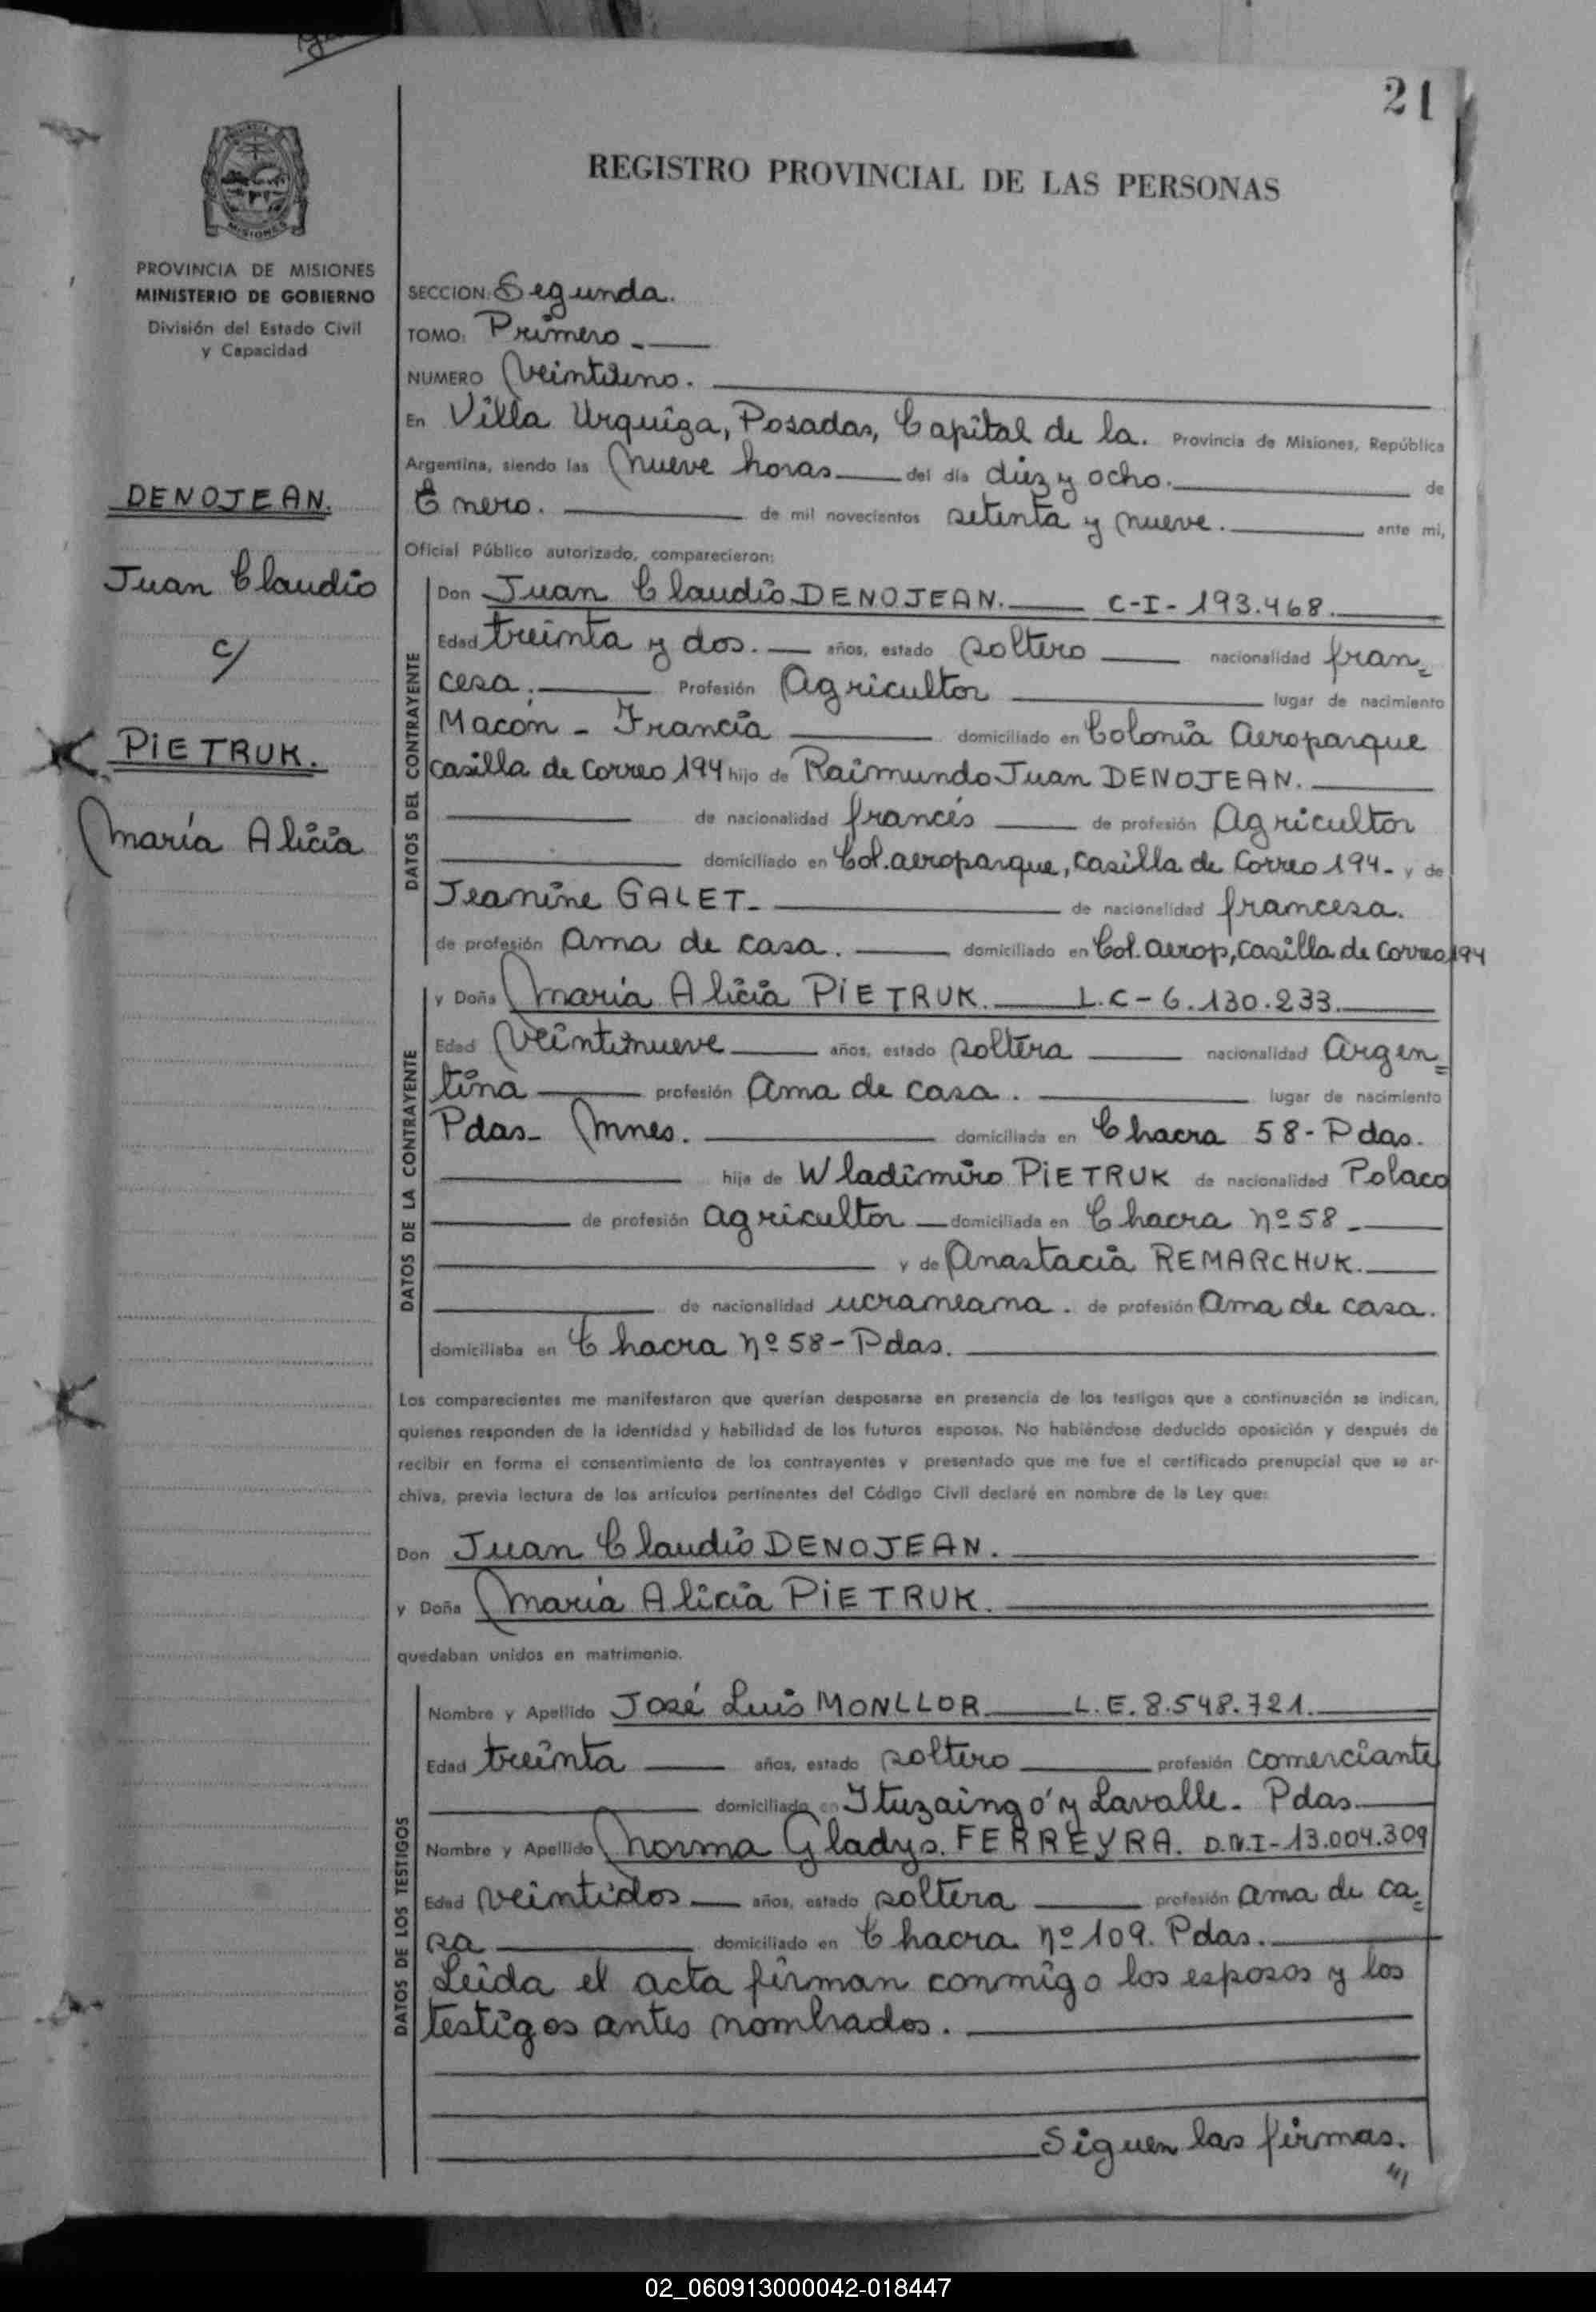 21
REGISTRO PROVINCIAL DE LAS PERSONAS
MISIONES
PROVINCIA DE MISIONES
MINISTERIO DE GOBIERNO
División del Estado Civil
y Capacidad
DENOJEAN.
Juan Claudio
c/
PIETRUK.
María Alicia
SECCION: Segunda.
TOMO: Primero.
NUMERO Veintiuno.
En Villa Urquiza, Posadas, Capital de la. Provincia de Misiones, República
Argentina, siendo las Nueve horas del día diez y ocho. de
Enero. de mil novecientos setenta y nueve. ante mi,
Oficial Público autorizado, comparecieron:
DATOS DEL CONTRAYENTE
Don Juan Claudio DENOJEAN. C-I-193.468.
Edad treinta y dos. años, estado soltero nacionalidad fran=
cesa. Profesión Agricultor lugar de nacimiento
Macón - Francia domiciliado en Colonia Aeroparque
casilla de Correo 194 hijo de Raimundo Juan DENOJEAN.
de nacionalidad francés de profesión Agricultor
domiciliado en Col. aeroparque, casilla de Correo 194- y de
Jeanine GALET- de nacionalidad francesa.
de profesión ama de casa. domiciliado en Col. aerop, casilla de correo 194
DATOS DE LA CONTRAYENTE
y Doña María Alicia PIETRUK. L.C-6.130.233.
Edad Veintinueve años, estado soltera nacionalidad Argen=
tina profesión Ama de casa. lugar de nacimiento
Pdas- Mnes. domiciliada en Chacra 58-Pdas.
hija de Wladimiro PIETRUK de nacionalidad Polaco
de profesión agricultor domiciliada en Chacra nº 58-
y de Anastacia REMARCHUK.
de nacionalidad ucraneana. de profesión Ama de casa.
domiciliaba en Chacra nº 58-Pdas.
Los comparecientes me manifestaron que querían desposarse en presencia de los testigos que a continuación se indican,
quienes responden de la identidad y habilidad de los futuros esposos. No habiéndose deducido oposición y después de
recibir en forma el consentimiento de los contrayentes y presentado que me fue el certificado prenupcial que se ar-
chiva, previa lectura de los artículos pertinentes del Código Civil declaré en nombre de la Ley que:
Don Juan Claudio DENOJEAN.
y Doña María Alicia PIETRUK.
quedaban unidos en matrimonio.
DATOS DE LOS TESTIGOS
Nombre y Apellido José Luis MONLLOR L.E.8.548.721.
Edad treinta años, estado soltero profesión comerciante
domiciliado en Ituzaingó y Lavalle- Pdas
Nombre y Apellido Norma Gladys. FERREYRA. D.N.I-13.004.309
Edad veintidos años, estado soltera profesión ama de ca=
sa domiciliado en Chacra nº 109. Pdas.
Leida el acta firman conmigo los esposos y los
testigos antes nombrados.
Siguen las firmas.
02_060913000042-018447